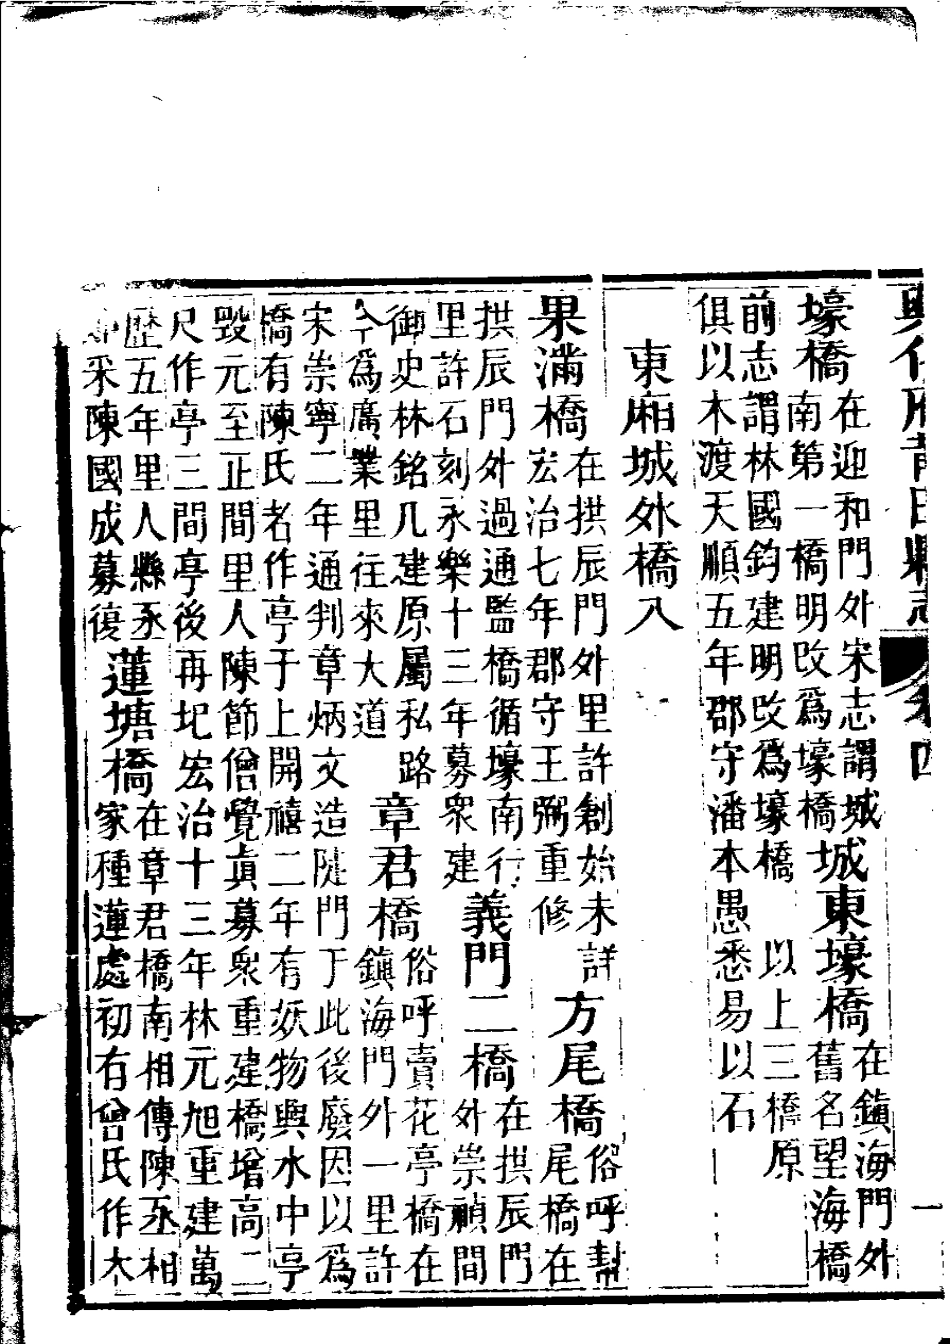 興化府莆田縣志
卷四
一
壕橋
在迎和門外宋志謂城
南第一橋明改爲壕橋
城東壕橋
在鎮海門外
舊名望海橋
前志謂林國鈞建明改爲壕橋　以上三橋原
俱以木渡天順五年郡守潘本愚悉易以石
東廂城外橋八
果滿橋
在拱辰門外里許創始未詳
宏治七年郡守王弼重修
方尾橋
俗呼幇
尾橋在
拱辰門外過通監橋循壕南行
里許石刻永樂十三年募衆建
義門二橋
在拱辰門
外崇禎間
御史林銘几建原屬私路
今爲廣業里往來大道
章君橋
俗呼賣花亭橋在
鎮海門外一里許
宋崇寧二年通判章炳文造陡門于此後廢因以爲
橋有陳氏者作亭于上開禧二年有妖物興水中亭
毀元至正間里人陳節僧覺眞募衆重建橋增高二
尺作亭三間亭後再圮宏治十三年林元旭重建萬
歷五年里人縣丞
采陳國成募復
蓮塘橋
在章君橋南相傳陳丞相
家種蓮處初有曾氏作木